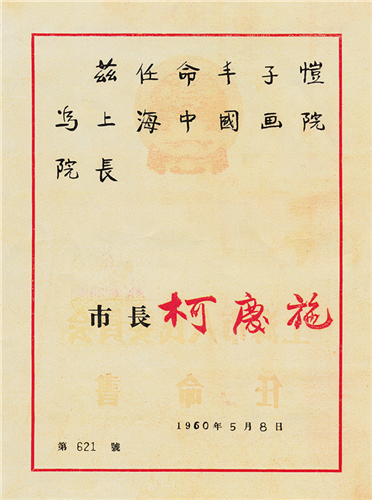 茲任命丰子愷
為上海中國画院
院長
市長 柯慶施
1960年5月8日
第 621 號